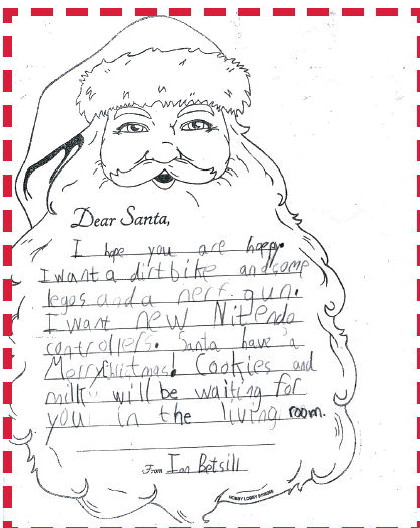 Dear Santa,
I hope you are happy.
I want a dirtbike and some
legos and a nerf gun.
I want new Nitendo
controllers. Santa have a
MerryChristmas! Cookies and
milk will be waiting for
you in the living room.
From Ian Betsill
HOBBY LOBBY